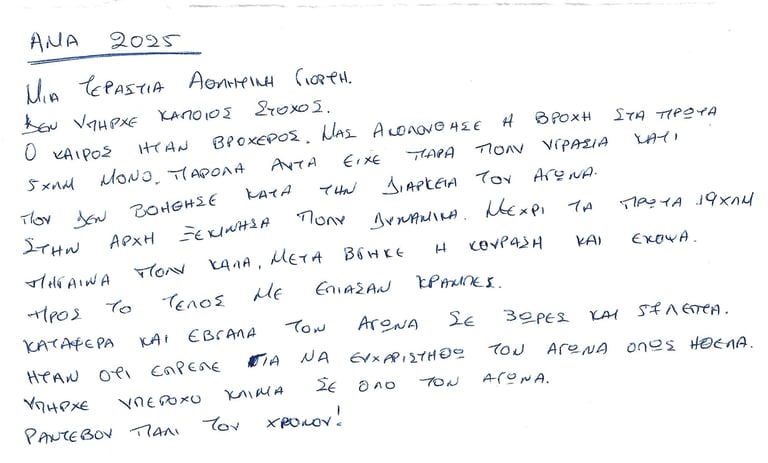 ΑΜΑ 2025
ΜΙΑ ΤΕΡΑΣΤΙΑ ΑΘΛΗΤΙΚΗ ΓΙΟΡΤΗ.
ΔΕΝ ΥΠΗΡΧΕ ΚΑΠΟΙΟΣ ΣΤΟΧΟΣ.
Ο ΚΑΙΡΟΣ ΗΤΑΝ ΒΡΟΧΕΡΟΣ. ΜΑΣ ΑΚΟΛΟΥΘΗΣΕ Η ΒΡΟΧΗ ΣΤΑ ΠΡΩΤΑ
5ΧΛΜ ΜΟΝΟ. ΠΑΡΟΛΑ ΑΥΤΑ ΕΙΧΕ ΠΑΡΑ ΠΟΛΥ ΥΓΡΑΣΙΑ ΚΑΤΙ
ΠΟΥ ΔΕΝ ΒΟΗΘΗΣΕ ΚΑΤΑ ΤΗΝ ΔΙΑΡΚΕΙΑ ΤΟΥ ΑΓΩΝΑ.
ΣΤΗΝ ΑΡΧΗ ΞΕΚΙΝΗΣΑ ΠΟΛΥ ΔΥΝΑΜΙΚΑ. ΜΕΧΡΙ ΤΑ ΠΡΩΤΑ 19ΧΛΜ
ΠΗΓΑΙΝΑ ΠΟΛΥ ΚΑΛΑ, ΜΕΤΑ ΒΓΗΚΕ Η ΚΟΥΡΑΣΗ ΚΑΙ ΕΚΟΨΑ.
ΠΡΟΣ ΤΟ ΤΕΛΟΣ ΜΕ ΕΠΙΑΣΑΝ ΚΡΑΜΠΕΣ.
ΚΑΤΑΦΕΡΑ ΚΑΙ ΕΒΓΑΛΑ ΤΟΝ ΑΓΩΝΑ ΣΕ 3ΩΡΕΣ ΚΑΙ ΛΕΠΤΑ.
ΗΤΑΝ ΟΤΙ ΕΠΡΕΠΕ ΓΙΑ ΝΑ ΕΥΧΑΡΙΣΤΗΘΩ ΤΟΝ ΑΓΩΝΑ ΟΠΩΣ ΗΘΕΛΑ.
ΥΠΗΡΧΕ ΥΠΕΡΟΧΟ ΚΛΙΜΑ ΣΕ ΟΛΟ ΤΟΝ ΑΓΩΝΑ.
ΡΑΝΤΕΒΟΥ ΠΑΛΙ ΤΟΥ ΧΡΟΝΟΥ!